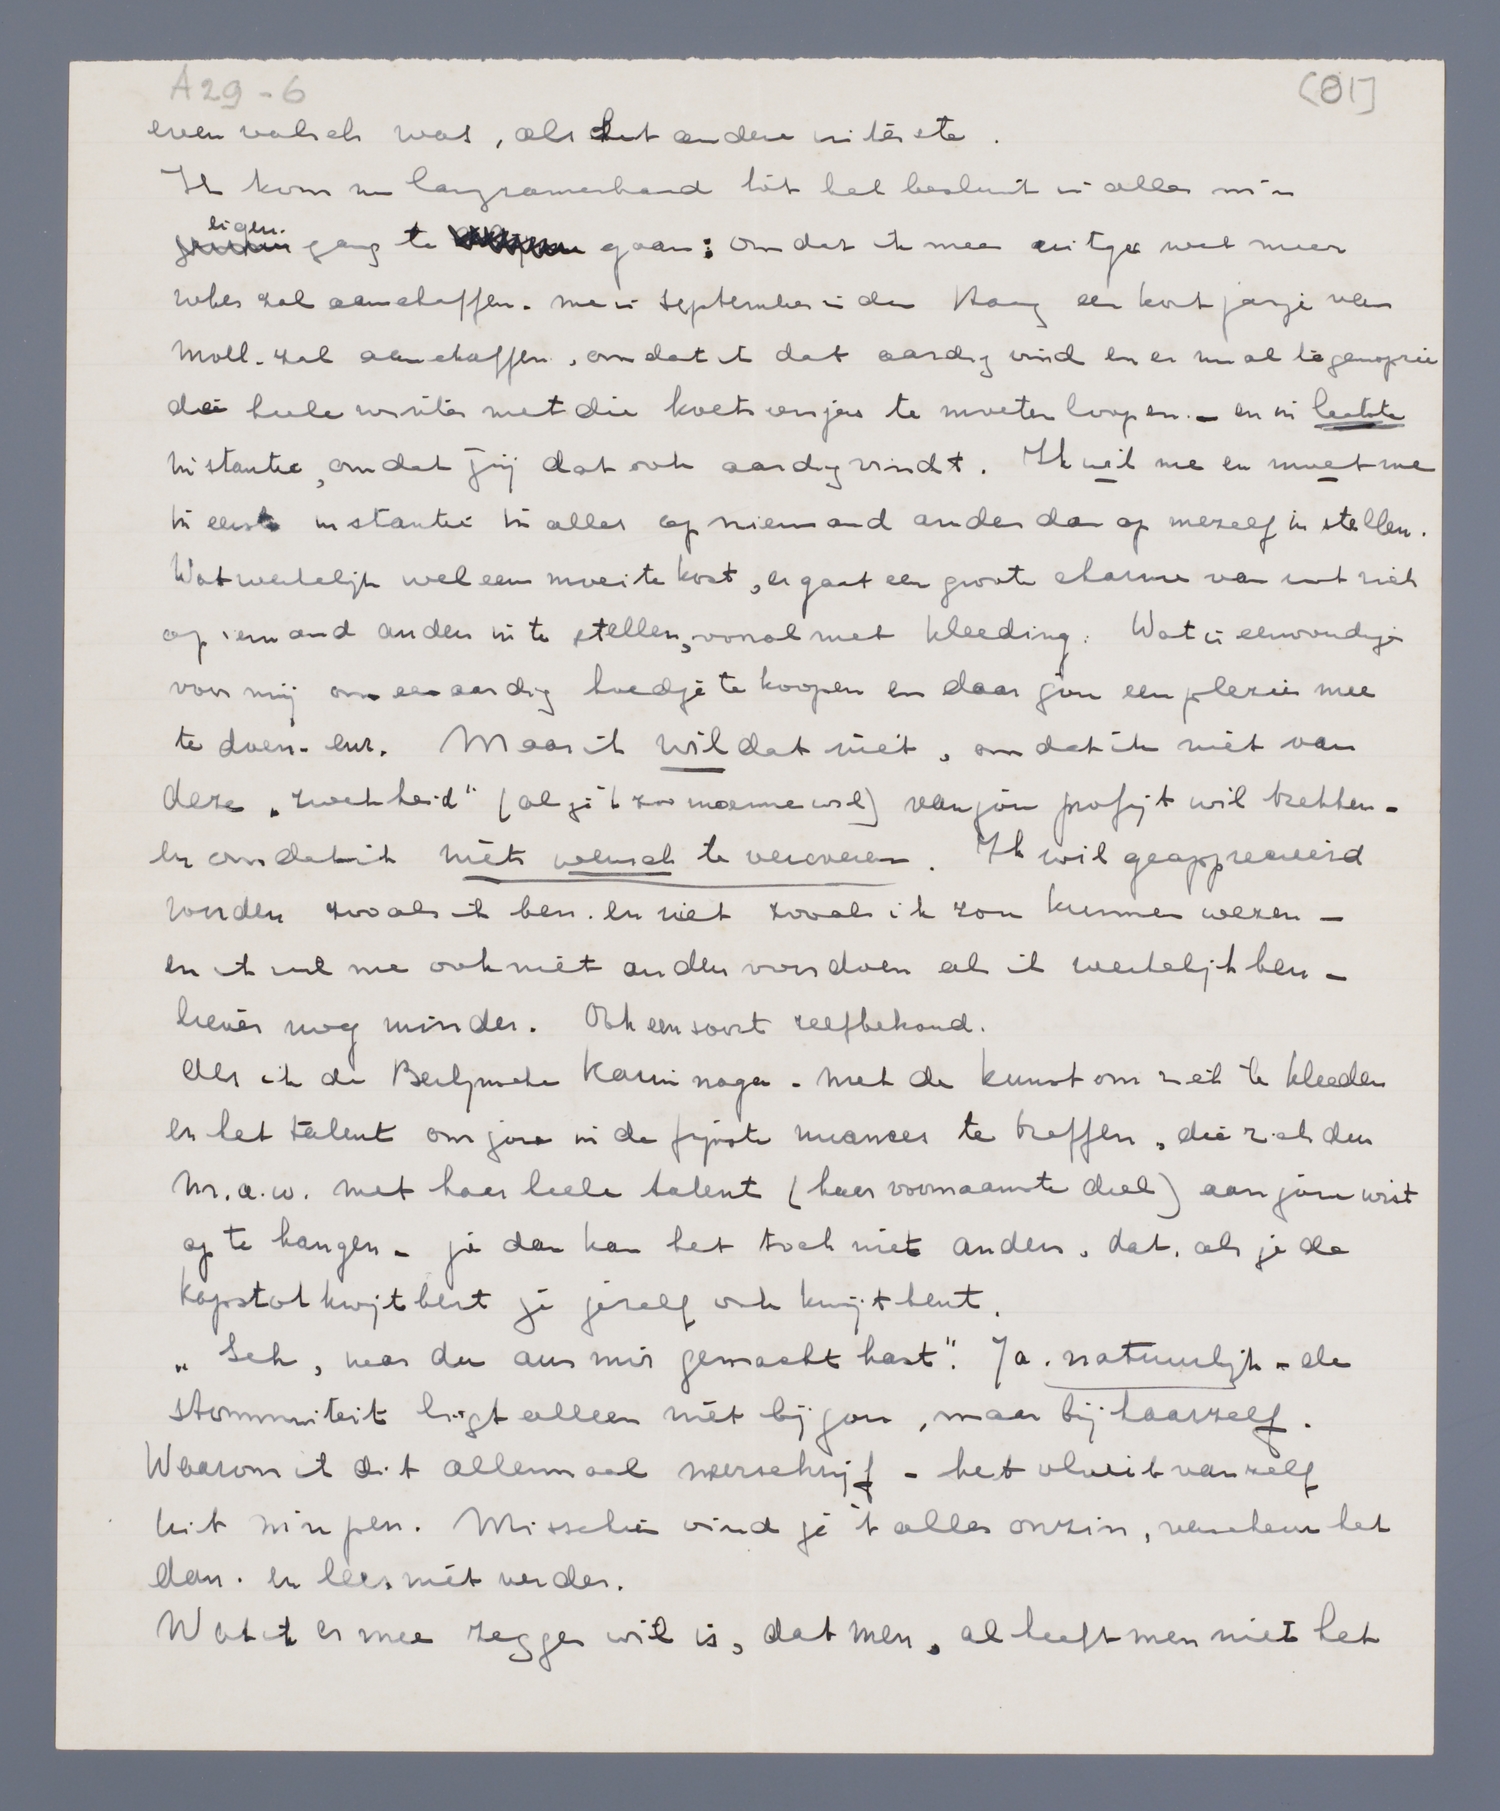 A29-6 (81)
even valsch was, als het andere uiterste.
Ik kom nu langzamerhand tot het besluit in alles m'n
eigen gang te gaan: omdat ik mee uitga wat meer
zal aanschaffen. me in september in den Haag een kort jasje van
Moll. zal aanschaffen, omdat ik dat aardig vind en er nu al tegenopzie
die heele winter met die koetsiersjas te moeten loopen. – en in laatste
instantie, omdat jij dat ook aardig vindt. Ik wil me en moet me
in eerste instantie in alles op niemand anders dan op mezelf in stellen.
Wat werkelijk wel eens moeite kost, er gaat een groote charme van uit zich
op iemand anders in te stellen, vooral met kleeding. Wat is eenvoudiger
voor mij om een aardig hoedje te koopen en daar jou een plezier mee
te doen. enz. Maar ik wil dat niet, omdat ik niet van
deze „zwakheid" (als je 't zoo noemen wil) van jou profijt wil trekken –
en omdat ik niets wensch te veroveren. Ik wil geapprecieerd
worden zooals ik ben. en niet zooals ik zou kunnen wezen –
en ik wil me ook niet anders voordoen als ik werkelijk ben –
liever nog minder. Ook een soort zelfbehoud.
Als ik de Berlijnsche Karin naga – met de kunst om zich te kleeden
en het talent om jou in de fijnste nuances te treffen, die zich dus
m.a.w. met haar heele talent (haar voornaamste deel) aan jou wist
op te hangen – ja dan kan het toch niet anders, dat, als je de
kapstok kwijt bent je jezelf ook kwijt bent.
„Seh, was du aus mir gemacht hast". Ja. natuurlijk – de
stommiteit ligt alleen niet bij jou, maar bij haarzelf.
Waarom ik dit allemaal neerschrijf – het vloeit vanzelf
uit m'n pen. Misschien vind je 't alles onzin, verscheur het
dan. en lees niet verder.
Wat ik er mee zeggen wil is, dat men, al heeft men niet het